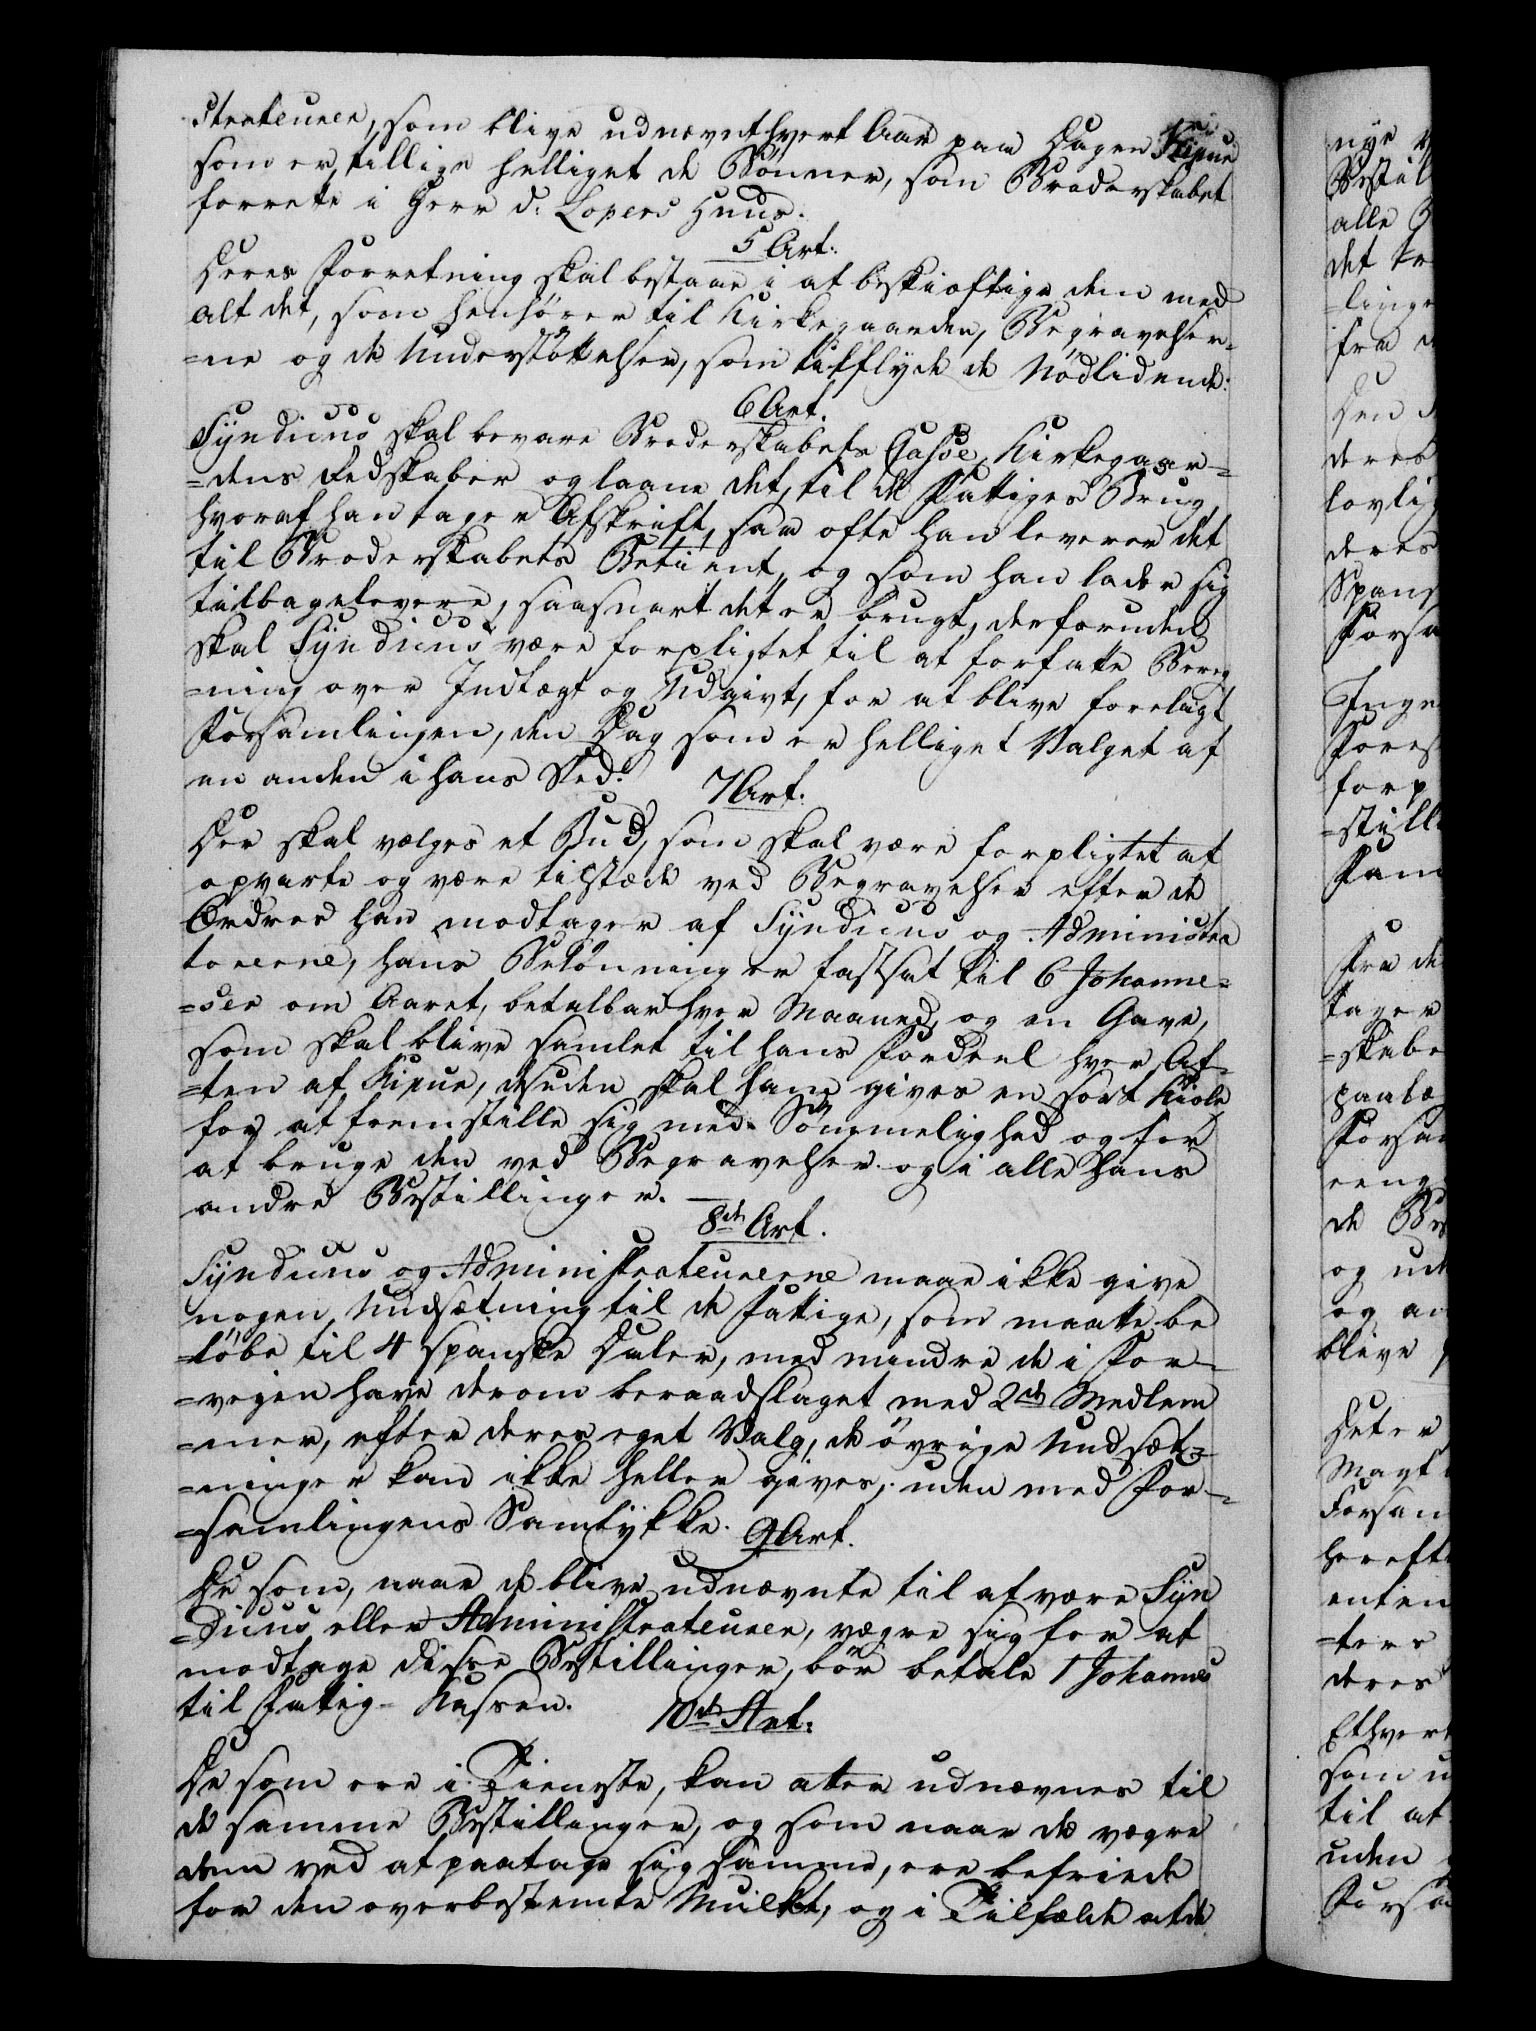 strateurer, som blive udnævnt hvert Aar paa Dagen Kipur
som er tillige helliget de Bønner, som Broderskabet
forrette i Herr d: Lopers Huus.
5 Art:
Deres Forretning skal bestaae i at beskiæftige dem med
alt det, som henhører til Kirkegaarden, Begravelser-
=ne og de Understøttelser, som tilflyde de Nødlidende.
6 Art.
Syndicus skal bevare Broderskabets Casse, Kirkegaar-
=dens Redskaber og laane det, til de Fattiges Brug,
hvoraf han tager Afskrift, saa ofte han leverer det
til Broderskabets Betient, og som han lader sig
tilbagelevere, saasnart det er brugt, desforuden
skal Syndicus være forpligtet til at forfatte Bereg
=ning over Indtægt og Udgivt, for at blive forelagt
Forsamlingen, den Dag som er helliget Valget af
en anden i hans Sted.
7 Art.
Der skal vælges et Bud, som skal være forpligtet at
opvarte og være tilstæde ved Begravelser efter de
Ordrer han modtager af Syndicus og Administra
torerne, hans Belønning er fastsat til 6 Johanne-
=ser om Aaret, betalbar hver Maaned, og en Gave,
som skal blive samlet til hans Fordeel hver Af-
=ten af Kipur, desuden skal ham gives en sort Kiole
for at fremstille sig med Sømmelighed og for
at bruge den ved Begravelser og i alle hans
andre Bestillinger.
8de Art.
Syndicus og Administrateurerne maae ikke give
nogen Undsætning til de Fattige, som maatte be
=løbe til 4 spanske Daler, med mindre de i For-
=vejen have derom beraadslaget med 2de Medlem
=mer, efter deres eget Valg, de øvrige Undsæt-
=ninger kan ikke heller gives, uden med For-
=samlingens Samtykke.
9 Art.
De som, naar de blive udnævnte til at være Syn
=dicus eller Administrateurer, vægre sig for at
modtage disse Bestillinger, bør betale 1 Johannes
til Fattig-Kassen.
10de Art.
De som ere i Tieneste, kan atter udnævnes til
de samme Bestillinger, og som naar de vægre
dem ved at paatage sig samme, ere befriede
for den overbestemte Mulkt, og i Tilfælde at de